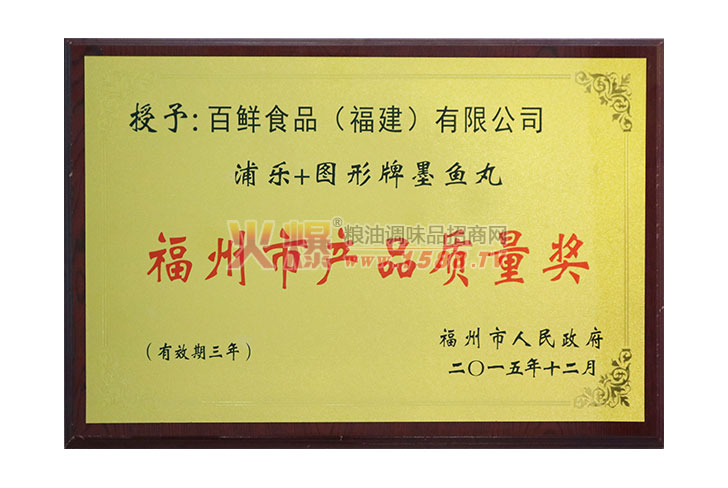 授予:百鲜食品（福建）有限公司
浦乐+图形牌墨鱼丸
火爆®粮油调味品招商网
www.1588.TV
福州市产品质量奖
（有效期三年）
福州市人民政府
二〇一五年十二月